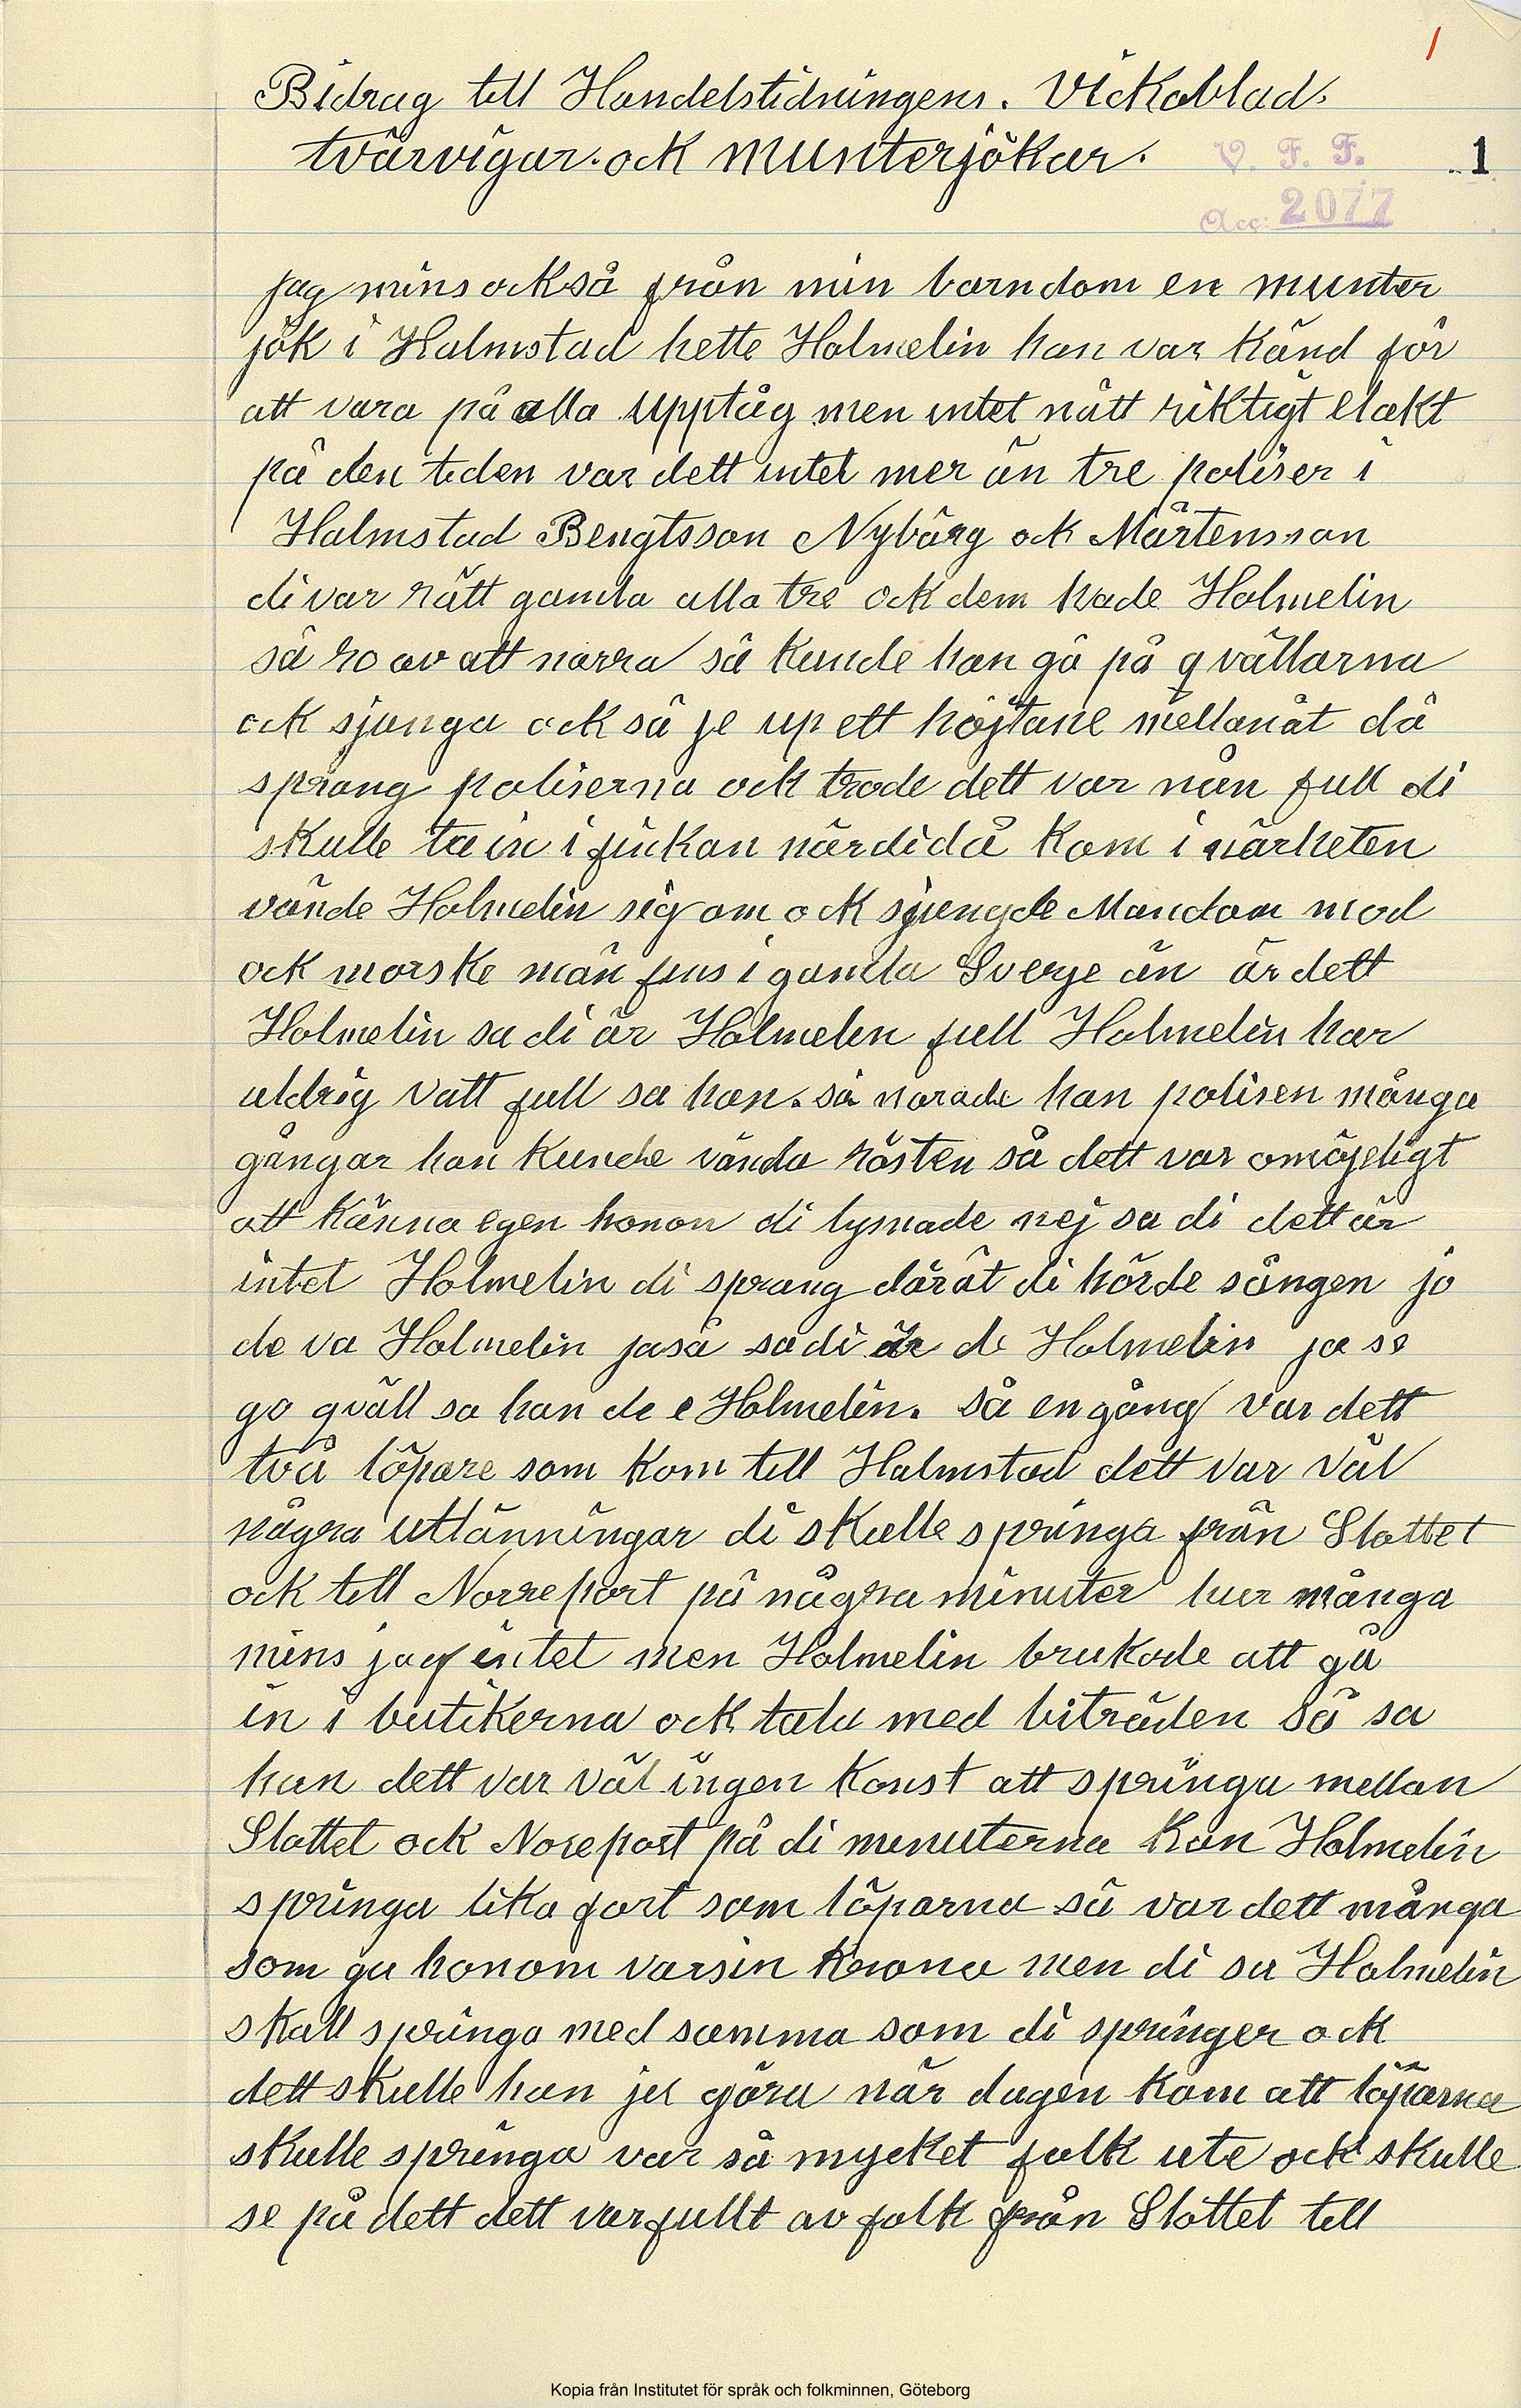 1
Bidrag till Handelstidningens. Vickoblad.
tvärvigar. ock munterjökar.
V. F. F.
1
Acc: 2077
jag mins också från min barndom en munter
jök i Halmstad hette Holmelin han var känd för
att vara på alla upptåg men intet nått riktigt elakt
på den tiden var dett intet mer än tre poliser i
Halmstad Bengtsson Nybärg ock Mårtensson
di var rätt gamla alla tre ock dem hade Holmelin
så ro av att narra så kunde han gå på qvällarna
ock sjunga ock så je up ett höjtane mellanåt då
sprang poliserna ock trode dett var nån full di
skulle ta in i finkan när di då kom i närheten
vände Holmelin sig om ock sjungde Mandom mod
ock morske män fins i gamla Sverje än är dett
Holmelin sa di är Holmelin full Holmelin har
aldrig vatt full sa han. så narade han polisen många
gångar han kunde vända rösten så dett var omöjeligt
att känna egen honom di lysnade nej sa di dett är
intet Holmelin di sprang däråt di hörde sången jo
de va Holmelin jaså sa di är de Holmelin ja se
go qväll sa han de e Holmelin. så en gång var dett
två löpare som kom till Halmstad dett var väl
några utlänningar di skulle springa från Slottet
ock till Norreport på några minuter hur många
mins jag intet men Holmelin brukade att gå
in i butikerna ock tala med biträden så sa
han dett var väl ingen konst att springa mellan
Slottet ock Noreport på di minuterna kan Holmelin
springa lika fort som löparna så var dett många
som ga honom varsin krona men di sa Holmelin
skall springa med samma som di springer ock
dett skulle han jel göra när dagen kom att löparna
skulle springa var så mycket folk ute ock skulle
se på dett dett var fullt av folk från Slottet till
Kopia från Institutet för språk och folkminnen, Göteborg